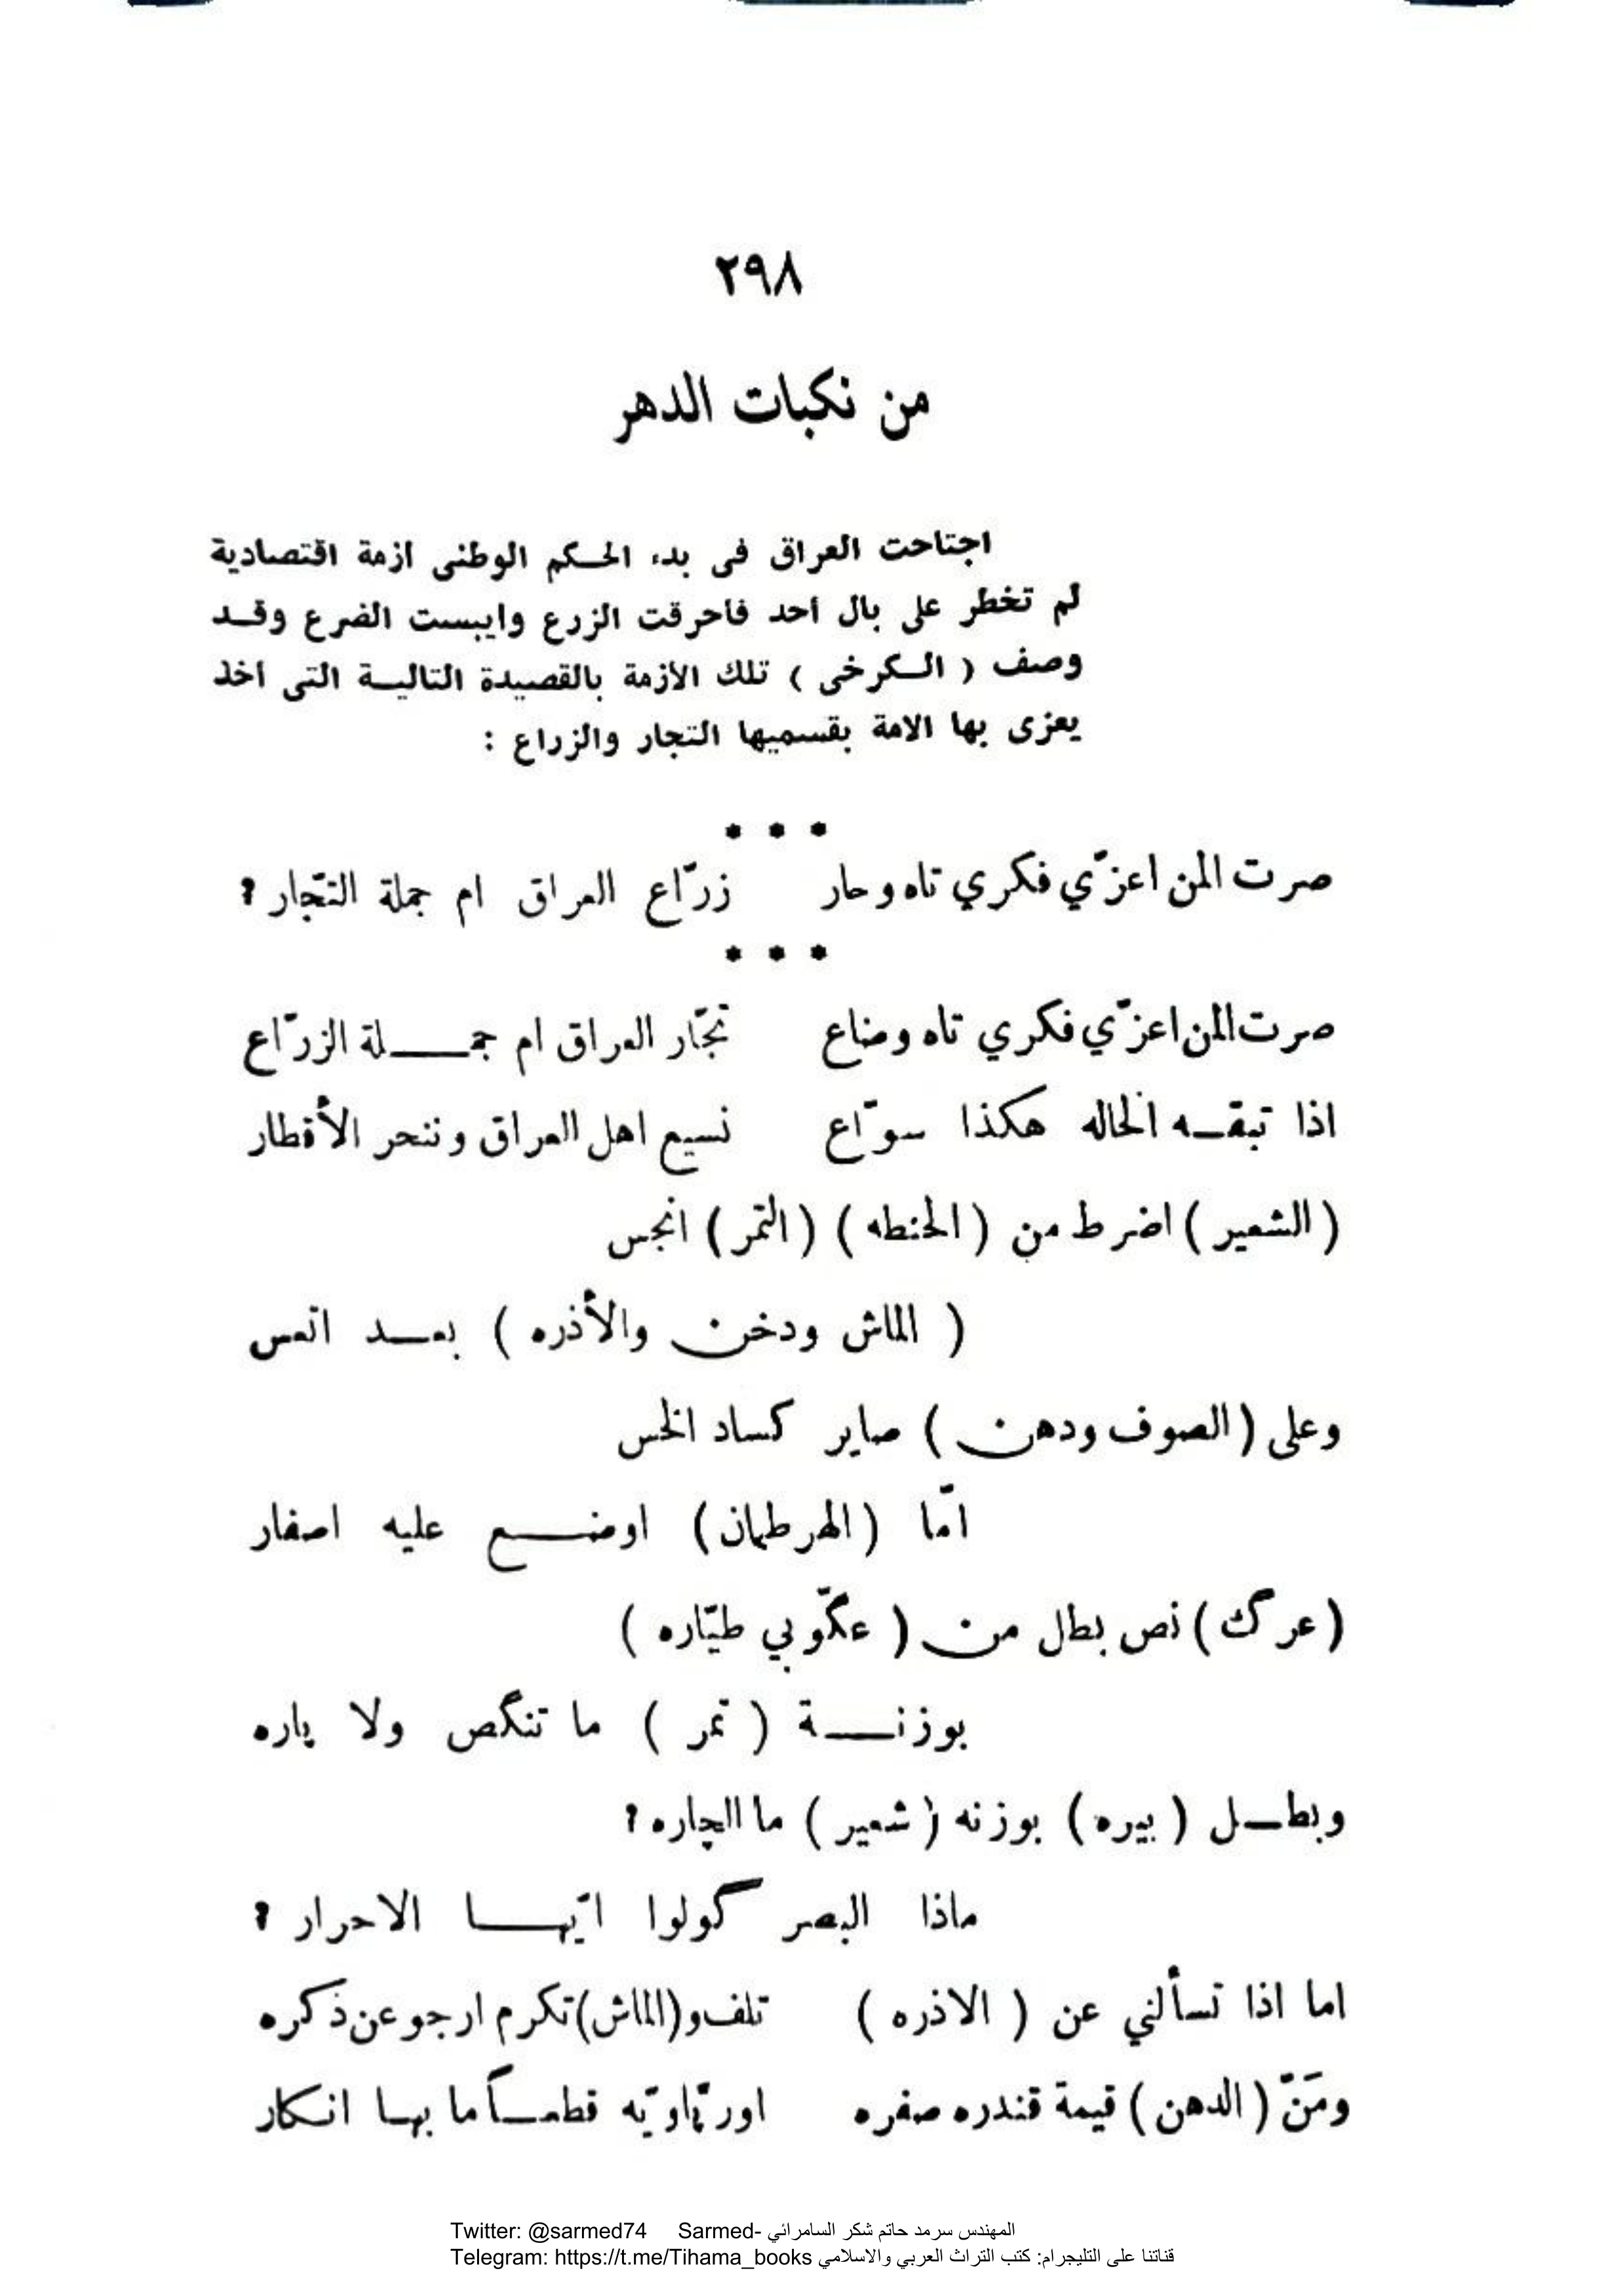 ٢٩٨
من نكبات الدهر
اجتاحت العراق فى بدء الحكم الوطنى ازمة اقتصادية
لم تخطر على بال أحد فأحرقت الزرع وايبست الضرع وقد
وصف ( الكرخى ) تلك الأزمة بالقصيدة التالية التى أخذ
يعزى بها الامة بقسميها التجار والزراع :
* * *
صرت المن اعزّي فكري تاه وحار زرّاع العراق ام جملة التجّار ؟
* * *
صرت المن اعزّي فكري تاه وضاع تجّار العراق ام جملة الزرّاع
اذا تبقه الحاله هكذا سوّاع نسيع اهل العراق وننحر الأقطار
( الشعير ) اضرط من ( الحنطه ) ( التمر ) انجس
( الماش ودخن والأذره ) بعد اتعس
وعلى ( الصوف ودهن ) صاير كساد الخس
امّا ( الهرطمان ) اوضع عليه اصفار
( عرگ ) نص بطل من ( عگوبي طيّاره )
بوزنة ( تمر ) ما تنگص ولا پاره
وبطل ( بيره ) بوزنه ( شعير ) ما الچاره ؟
ماذا البصر گولوا ايّها الاحرار ؟
اما اذا تسألني عن ( الاذره ) تلف و ( الماش ) تكرم ارجو عن ذكره
ومَنّ ( الدهن ) قيمة قندره صفره قطعاً ما بها انكار
Twitter: @sarmed74 Sarmed- المهندس سرمد حاتم شكر السامرائي
Telegram: https://t.me/Tihama_books قناتنا على التليجرام: كتب التراث العربي والاسلامي